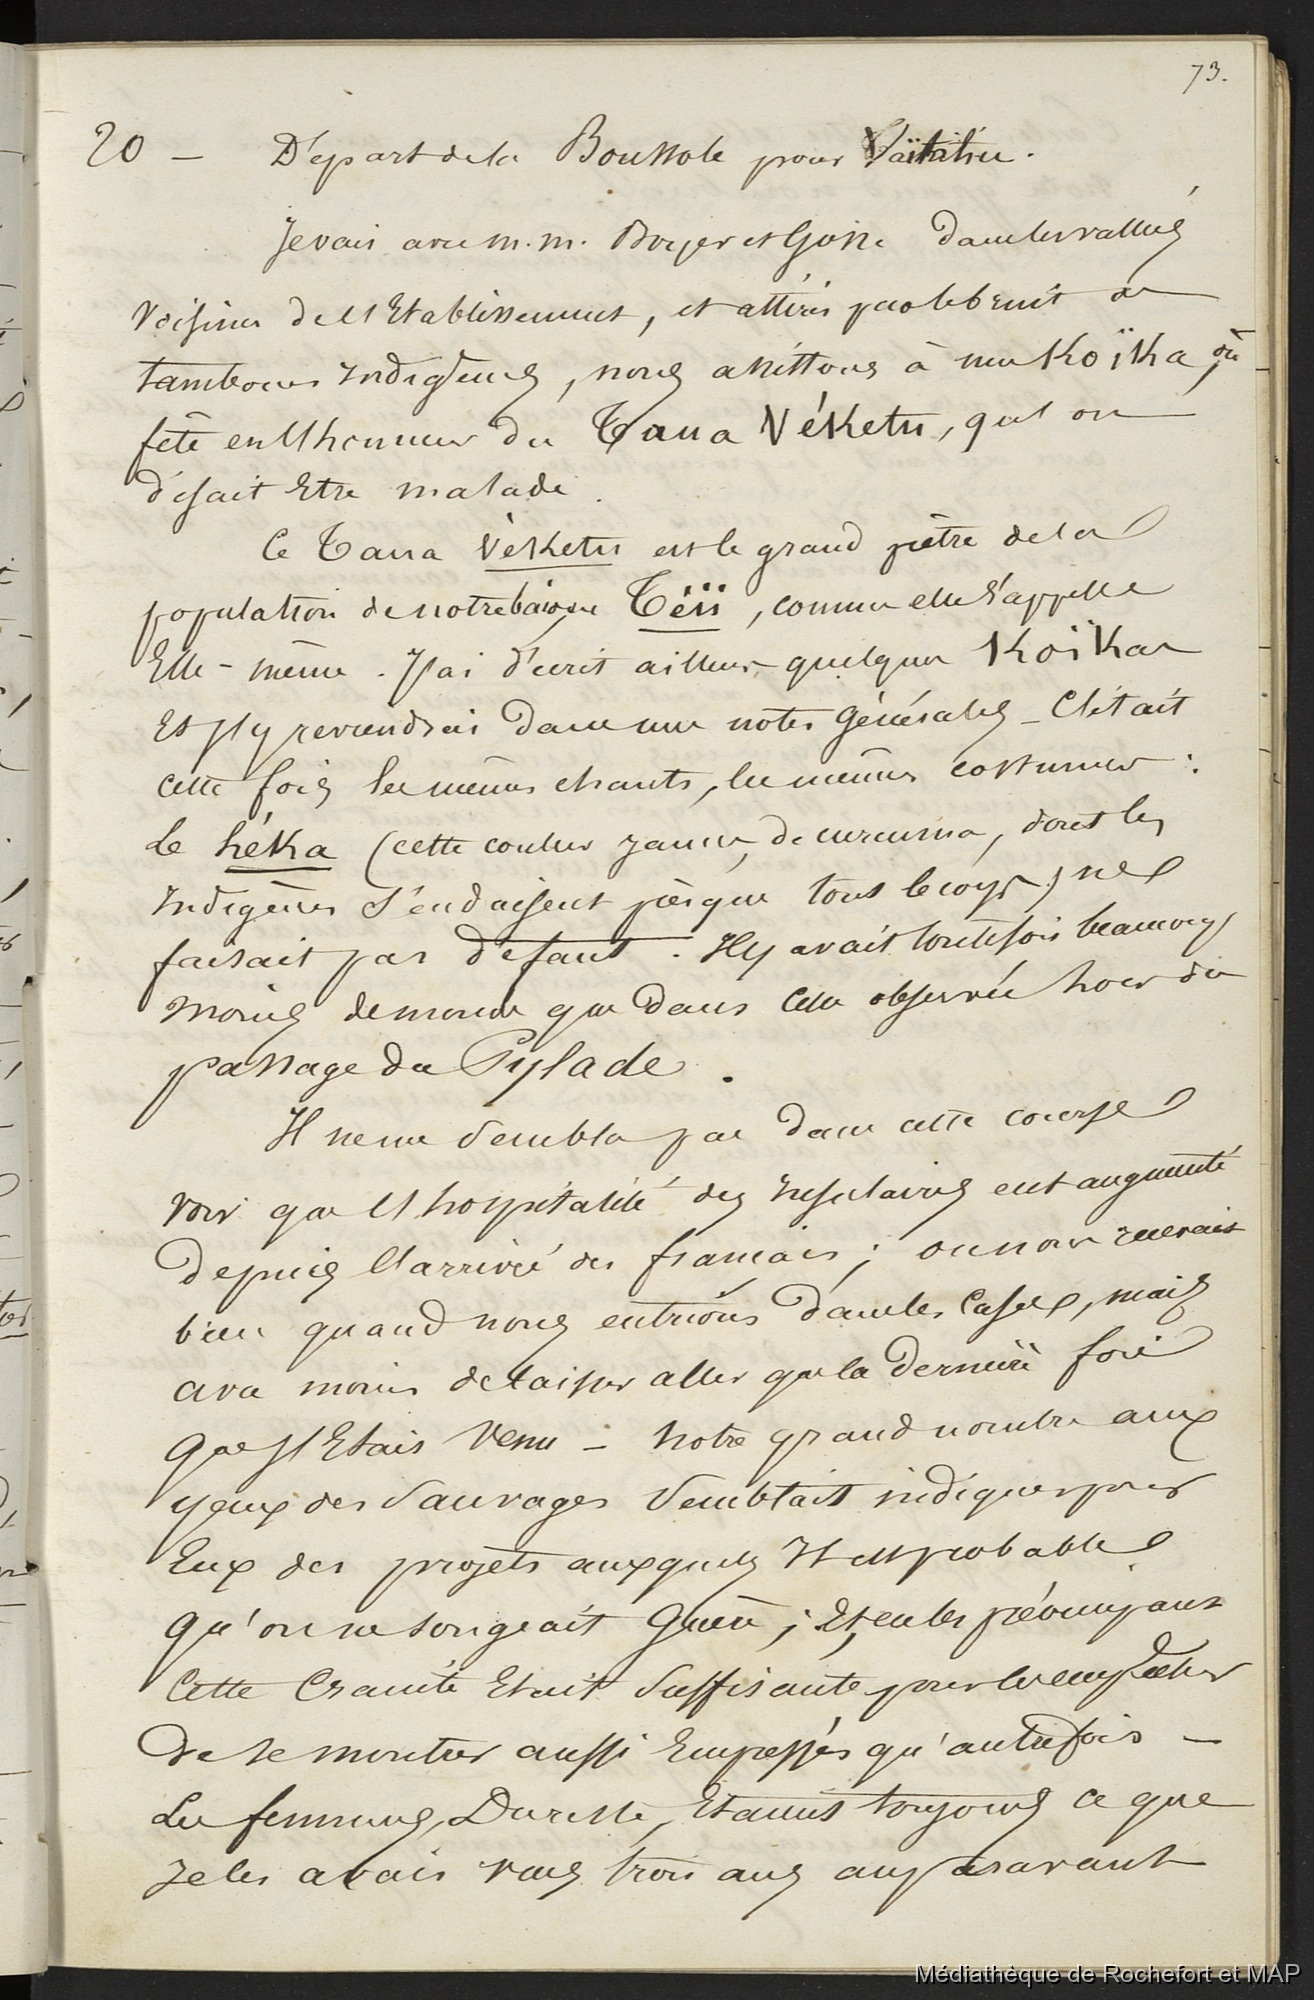 73.
20 — Départ de la Boussole pour Vaïtahu.
Je vais avec m.m. Boyer et Gosse dans les vallées
voisines de l'Etablissement, et attirés par le bruit de
tambours indigènes, nous assistons à un Koïka, ou
fête en l'honneur du Taua Vékétu, qu'on
disait être malade.
Ce Taua Vékétu est le grand prêtre de la
population de notre baie, ou Téïi, comme elle s'appelle
Elle-même. J'ai décrit ailleurs quelques Koïkas
Et j'y reviendrai dans mes notes générales — C'était
cette fois les mêmes chants, les mêmes costumes :
le héka (cette couleur jaune, de curcuma, dont les
indigènes s'enduisent presque tous le corps) ne
faisait pas défaut. Il y avait toutefois beaucoup
moins de monde que dans celle observée hors du
passage du Pylade.
Il ne me sembla pas dans cette course
voir que l'hospitalité des insulaires eut augmenté
depuis l'arrivée des français ; on nous recevait
bien quand nous entrions dans les cases, mais
avec moins de laisser aller que la dernière fois
que j'Etais venu — Notre grand nombre aux
yeux des sauvages semblait indiquer pour
Eux des projets auxquels il est probable
qu'on ne songeait guère ; Et, en les prévenant
cette crainte Etait suffisante pour les empêcher
de se montrer aussi Empressés qu'autrefois —
Les femmes, Du reste, Etaient toujours ce que
je les avais vues trois ans auparavant
Médiathèque de Rochefort et MAP